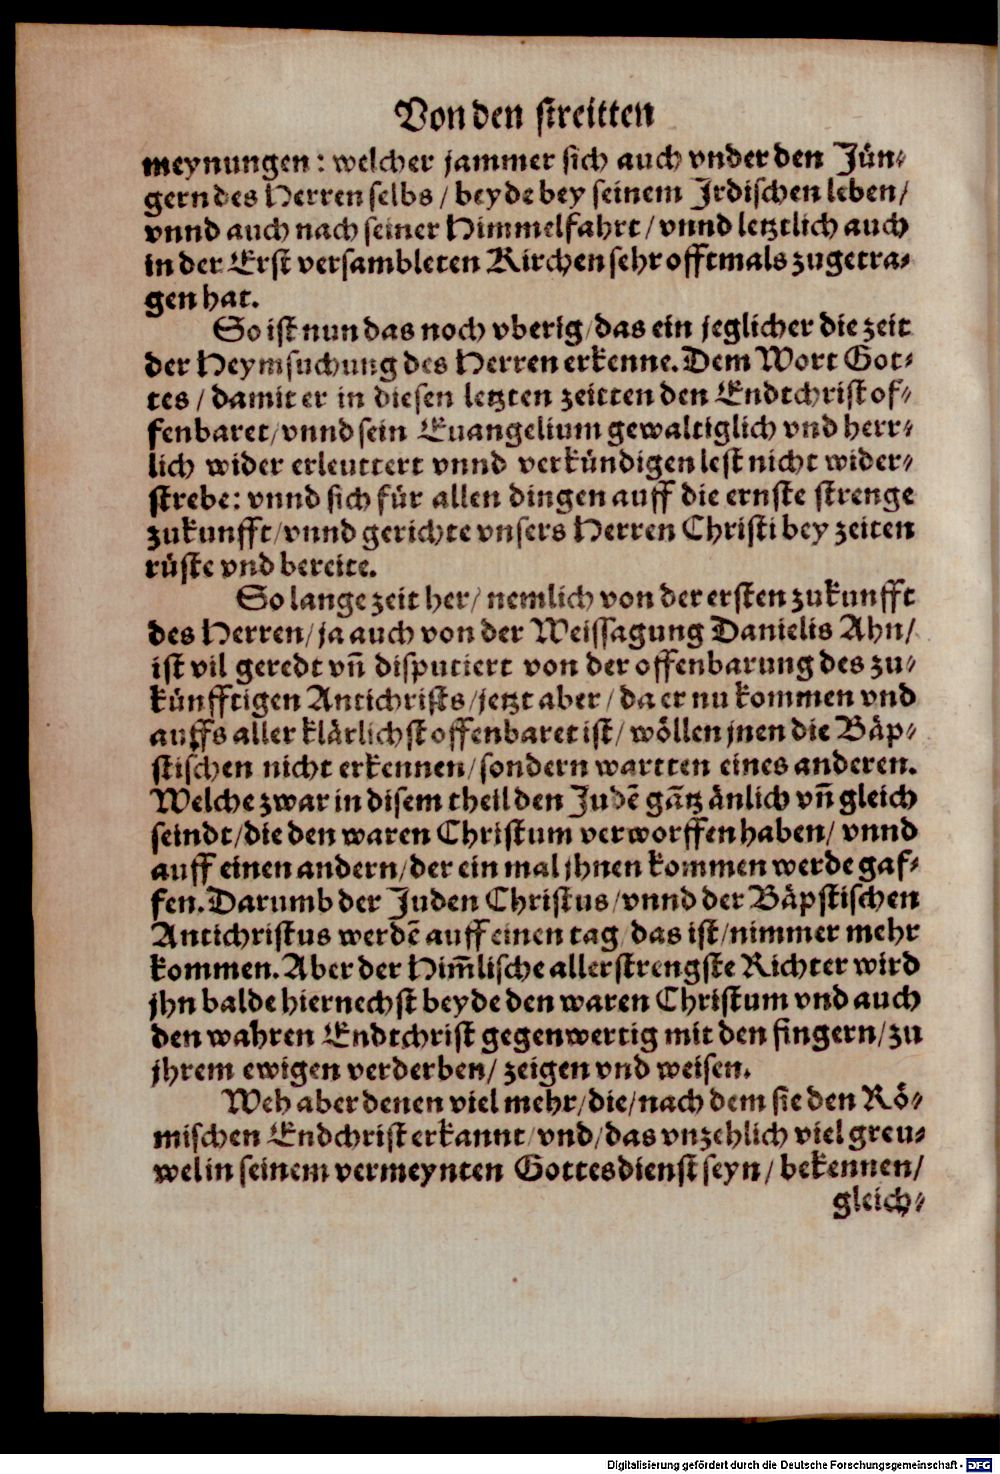 Von den streitten
meynungen: welcher jammer sich auch vnder den Jün-
gern des Herren selbs / beyde bey seinem Jrdischen leben /
vnnd auch nach seiner Himmelfahrt / vnnd letztlich auch
in der Erst versambleten Kirchen sehr offtmals zugetra-
gen hat.
So ist nun das noch vberig / das ein jeglicher die zeit
der Heymsuchung des Herren erkenne. Dem Wort Got-
tes / damit er in diesen letzten zeitten den Endtchrist of-
fenbaret / vnnd sein Euangelium gewaltiglich vnd herr-
lich wider erleuttert vnnd verkündigen lest nicht wider-
strebe: vnnd sich für allen dingen auff die ernste strenge
zukunfft / vnnd gerichte vnsers Herren Christi bey zeiten
rüste vnd bereite.
So lange zeit her / nemlich von der ersten zukunfft
des Herren / ja auch von der Weissagung Danielis Ahn /
ist vil geredt vñ disputiert von der offenbarung des zu-
künfftigen Antichrists / jetzt aber / da er nu kommen vnd
auffs aller klärlichst offenbaret ist / wöllen jnen die Bäp-
stischen nicht erkennen / sondern wartten eines anderen.
Welche zwar in disem theil den Judẽ gãtz änlich vñ gleich
seindt / die den waren Christum verworffen haben / vnnd
auff einen andern / der ein mal jhnen kommen werde gaf-
fen. Darumb der Juden Christus / vnnd der Bäpstischen
Antichristus werdẽ auff einen tag / das ist / nimmer mehr
kommen. Aber der Him̃lische allerstrengste Richter wird
jhn balde hiernechst beyde den waren Christum vnd auch
den wahren Endtchrist gegenwertig mit den fingern / zu
jhrem ewigen verderben / zeigen vnd weisen.
Weh aber denen viel mehr / die / nach dem sie den Rö-
mischen Endchrist erkannt / vnd / das vnzehlich viel greu-
wel in seinem vermeynten Gottesdienst seyn / bekennen /
gleich-
Digitalisierung gefördert durch die Deutsche Forschungsgemeinschaft - DFG